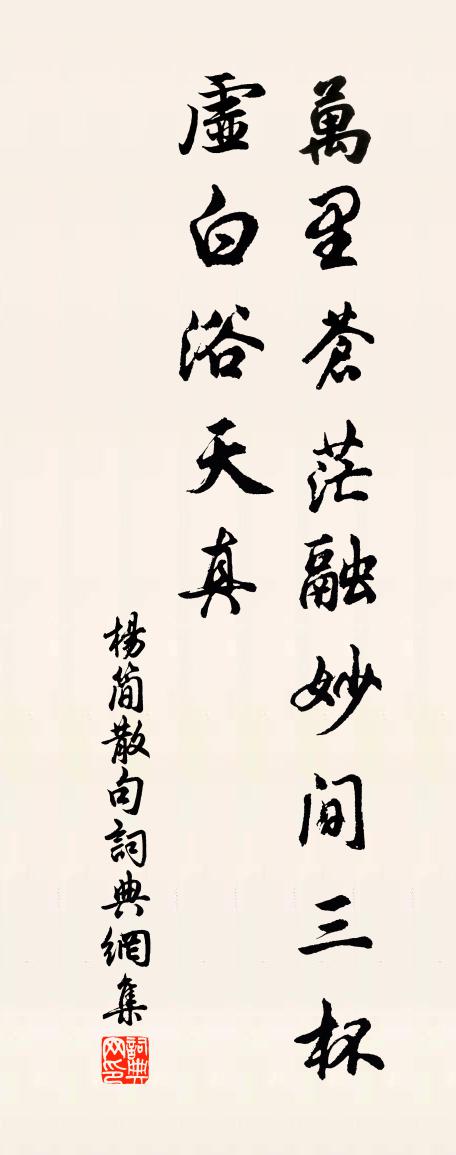 萬里蒼茫融妙間三杯
虛白浴天真
楊簡散句詞典網集
詞典網印